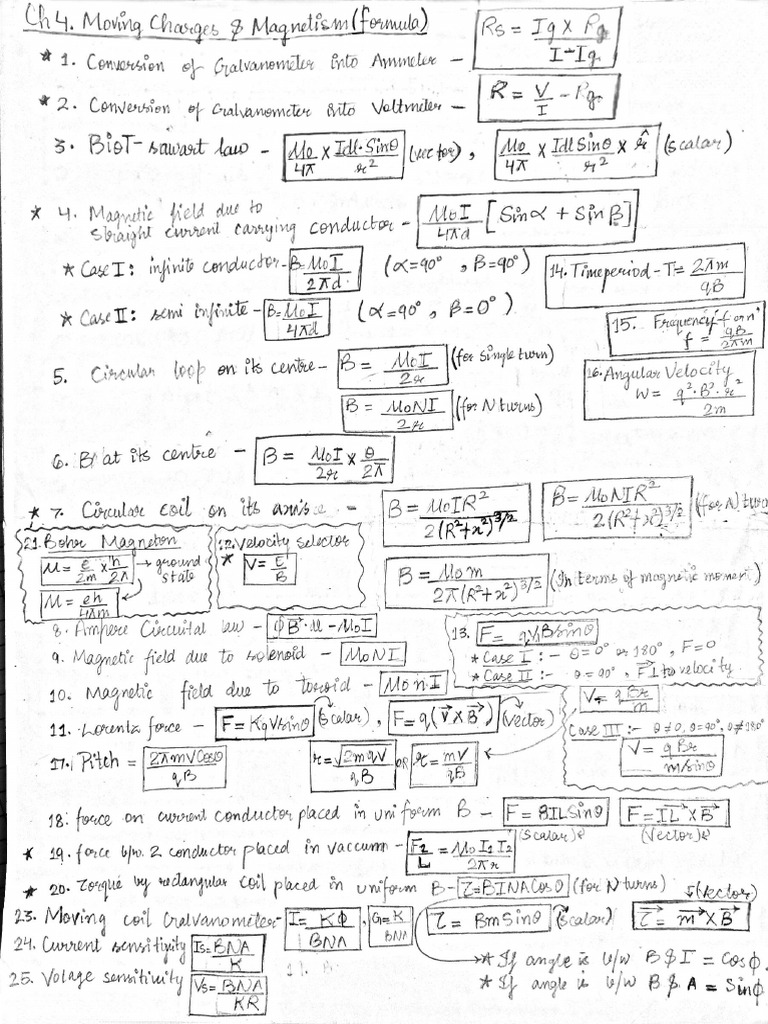 Ch 4. Moving Charges & Magnetism (formula)
* 1. Conversion of Galvanometer into Ammeter - Rs = Ig × Rg / I - Ig
* 2. Conversion of Galvanometer into Voltmeter - R = V/I - Rg
3. BioT-savart law - Mo/4π × Idl·Sinθ/r² (vector), Mo/4π × IdlSinθ × r̂/r² (scalar)
* 4. Magnetic field due to
straight current carrying conductor - MoI/4πd [Sinα + Sinβ]
* Case I: infinite conductor - B = MoI/2πd (α=90°, β=90°)
14. Timeperiod - T = 2πm/qB
* Case II: semi infinite - B = MoI/4πd (α=90°, β=0°)
15. Frequency f = qB/2πm
5. Circular loop on its centre - B = MoI/2r (for single turn)
B = MoNI/2r (for N turns)
16. Angular Velocity
W = q²·B²·r²/2m
6. B at its centre - B = MoI/2r × θ/2π
* 7. Circular coil on its - B = MoIR²/2(R²+x²)^3/2 B = MoNIR²/2(R²+x²)^3/2 (for N turns)
21. Bohr Magneton
M = e/2m × h/2π → ground state
M = eh/4πm
12. Velocity selector
* V = E/B
B = Mom/2π(R²+x²)^3/2 (In terms of magnetic moment)
8. Ampere Circuital law - ∮B·dl = MoI
9. Magnetic field due to solenoid - MoNI
10. Magnetic field due to toroid - Mo n·I
13. F = qVBsinθ
* Case I :- θ=0° or 180°, F=0
* Case II :- θ=90°, F⊥ to velocity
V = qBr/m
Case III :- θ≠0, θ≠90°, θ≠180°
V = qBr/m/sinθ
11. Lorentz force - F = KqVsinθ (Scalar), F = q(V×B) (Vector)
17. Pitch = 2πmVCosθ/qB r = √2mqV/qB or r = mV/qB
18. force on current conductor placed in uniform B - F = BILSinθ (Scalar) F = IL×B (Vector)
* 19. force b/w 2 conductor placed in vaccum - F2/L = MoI1I2/2πr
* 20. Torque by rectangular coil placed in uniform B - τ = BINACosθ (for N turns)
τ = BmSinθ (Scalar) τ = m×B (Vector)
23. Moving coil Gralvanometer - I = Kφ/BNA, G = K/BNA
24. Current sensitivity Is = BNA/K
* If angle is b/w B & I = Cosφ.
* If angle is b/w B & A = Sinφ.
25. Volage sensitivity Vs = BNA/KR